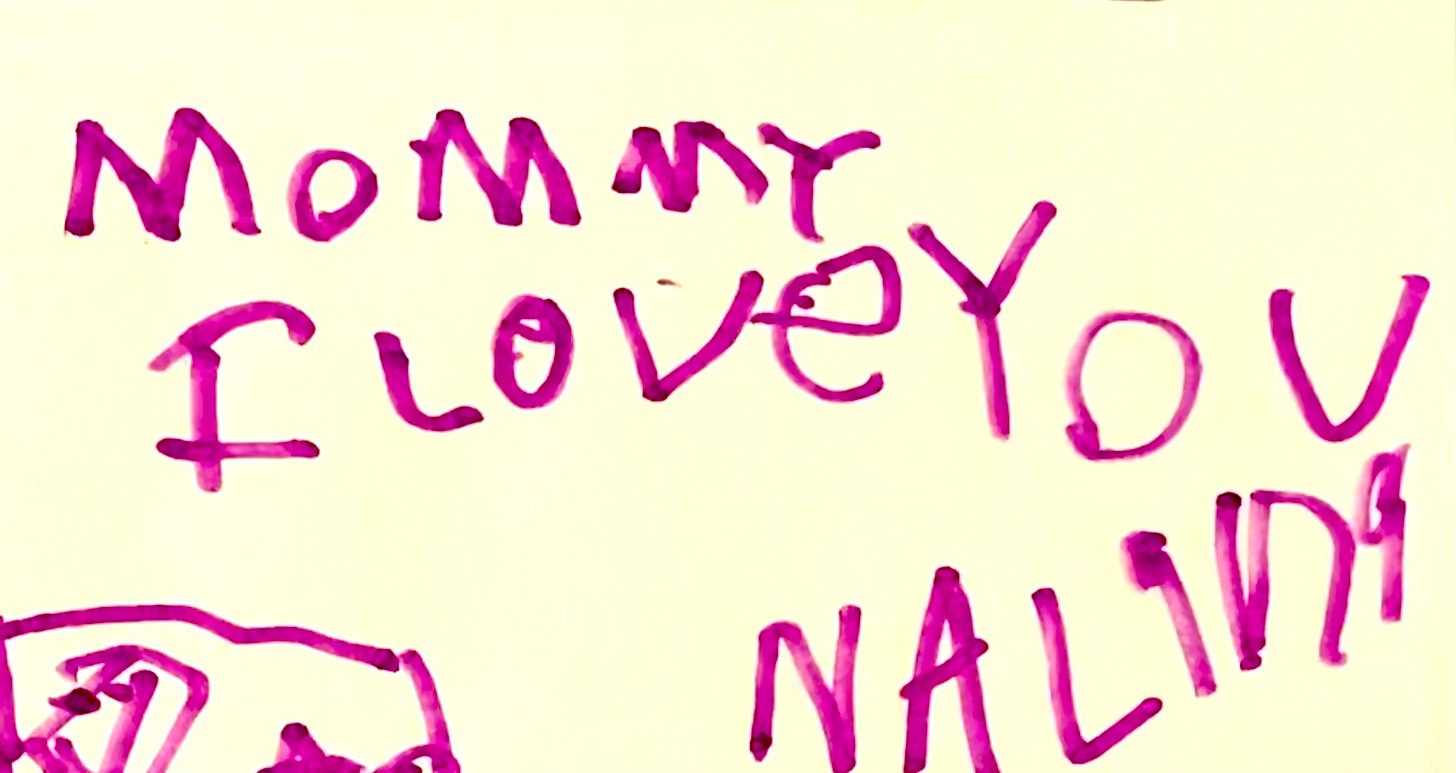 MOMMY
I LOVe YOU
NALiNa